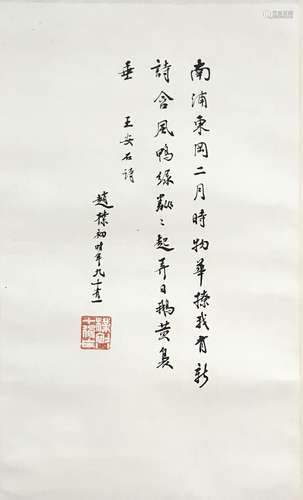 南浦東岡二月時物華撩我有新
詩含風鴨綠粼〻起弄日鵝黃裊
垂 王安石詩
趙樸初时年九十